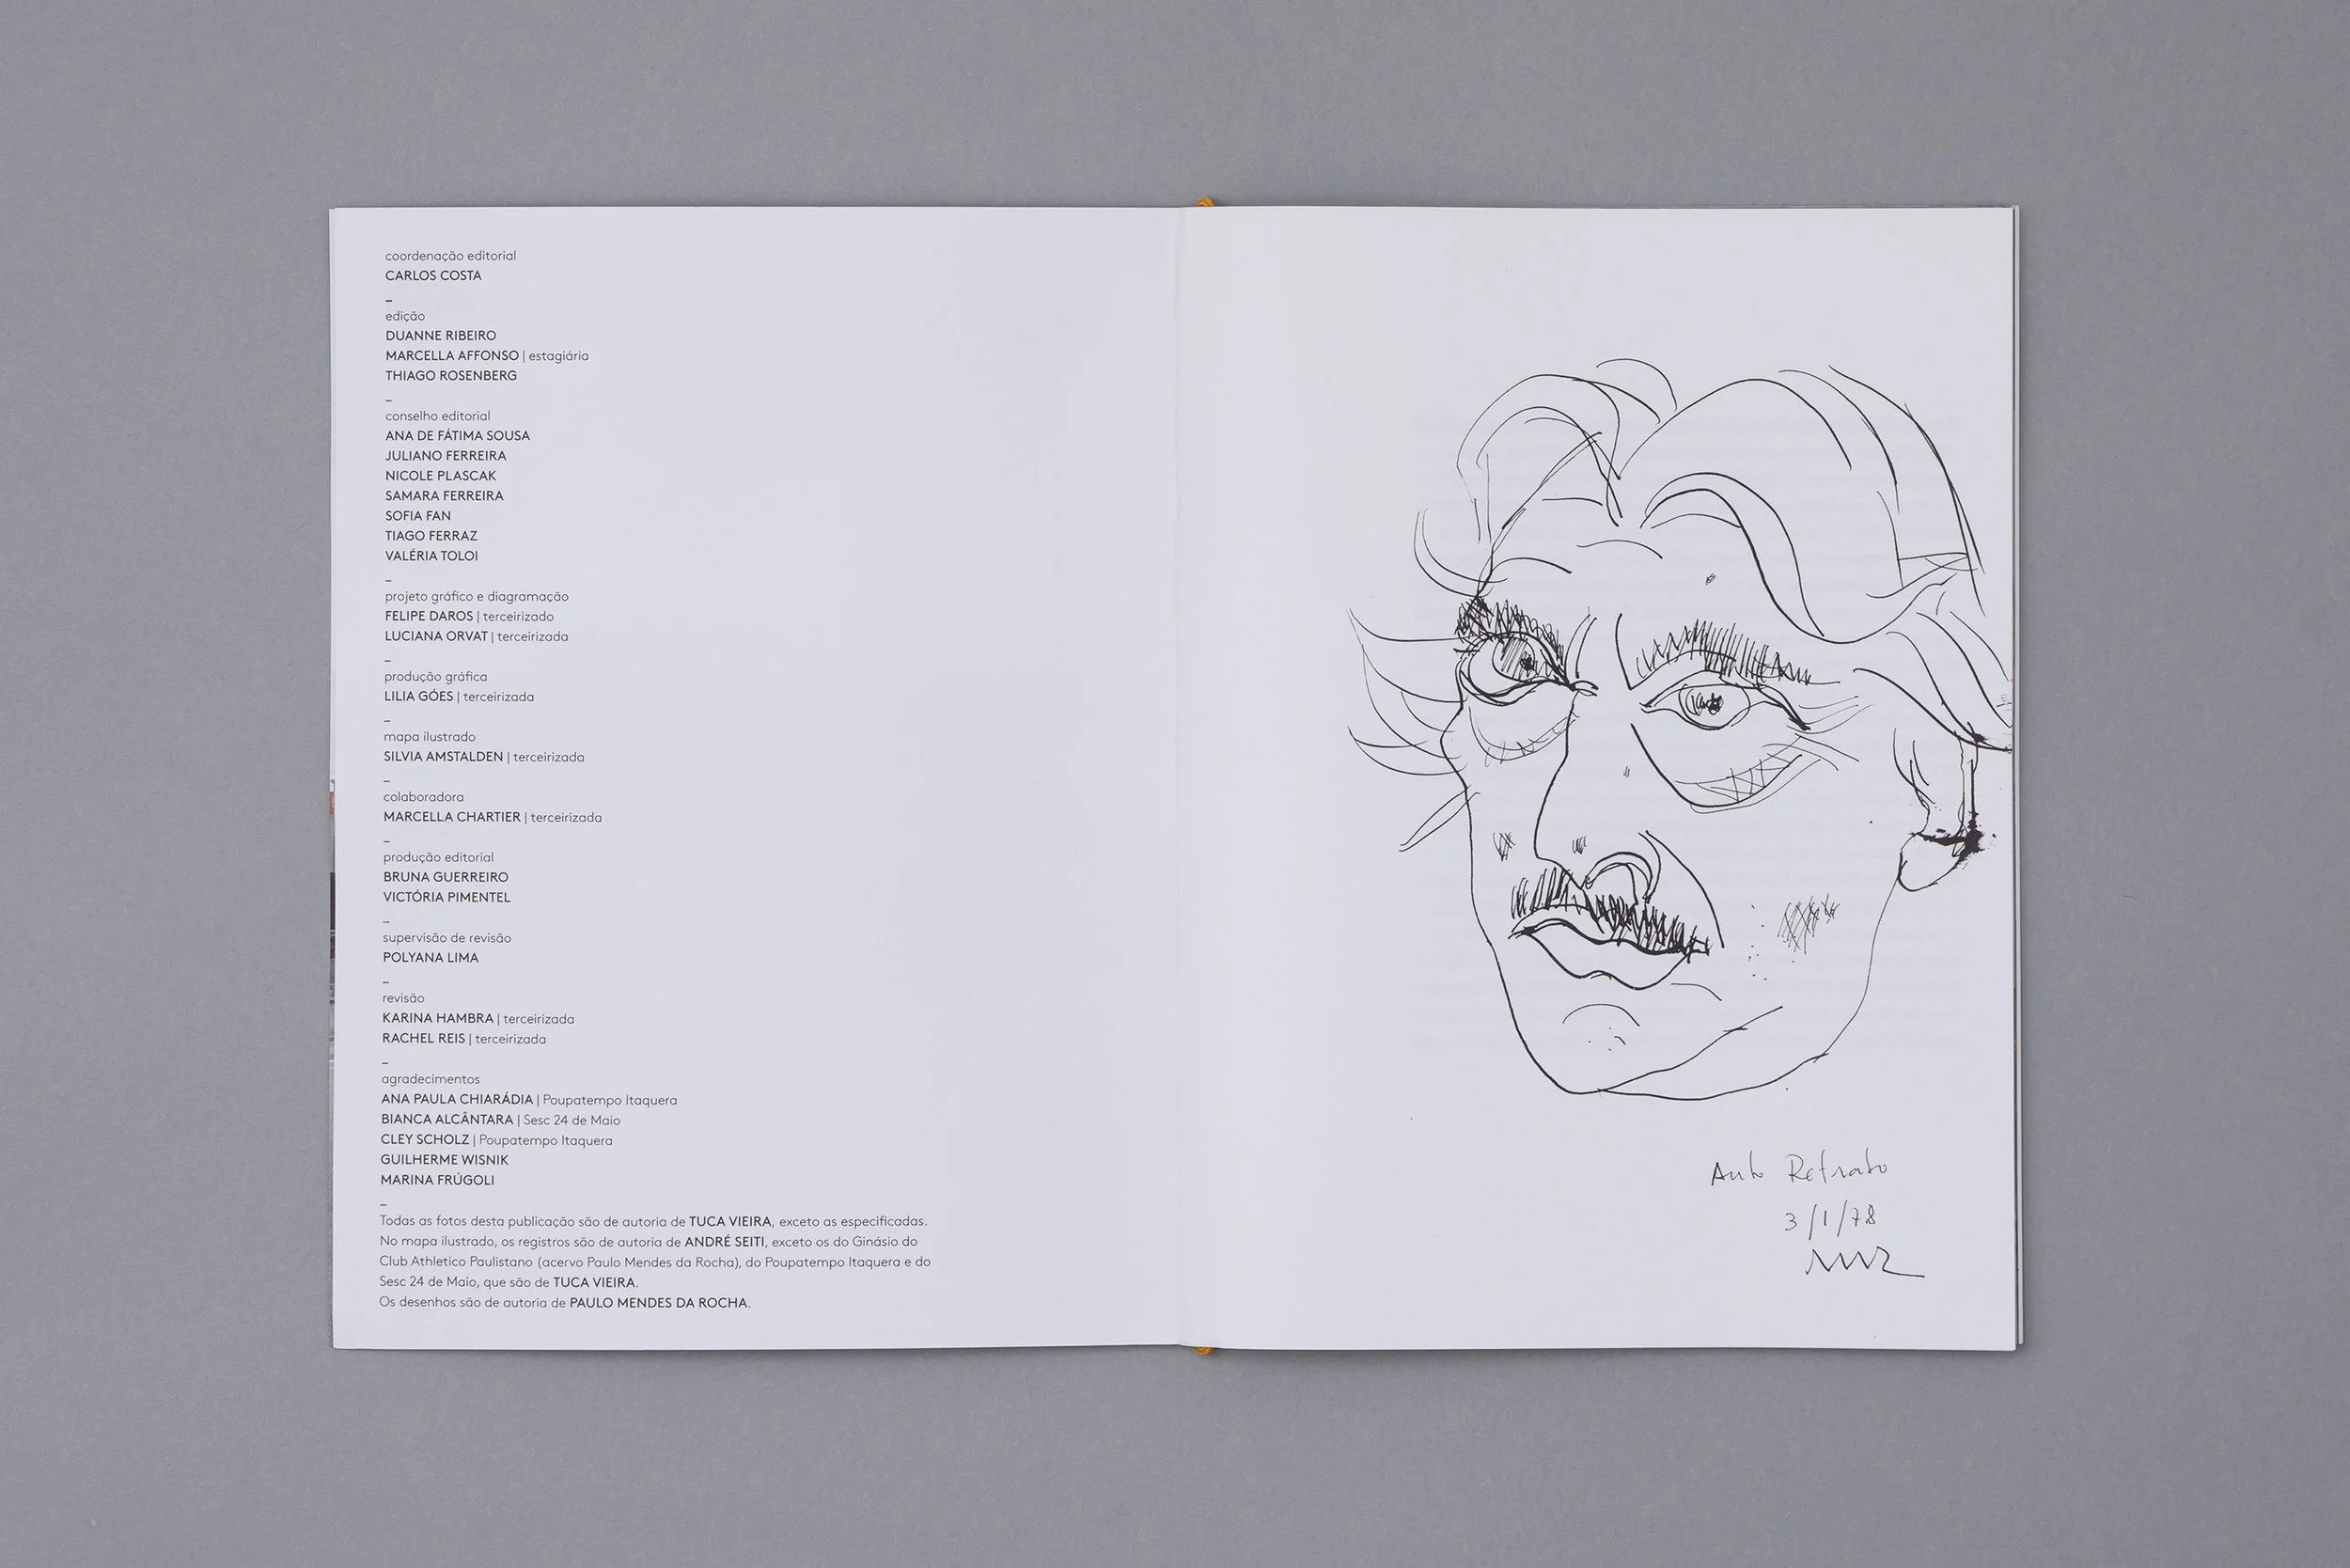 coordenação editorial
CARLOS COSTA
–
edição
DUANNE RIBEIRO
MARCELLA AFFONSO | estagiária
THIAGO ROSENBERG
–
conselho editorial
ANA DE FÁTIMA SOUSA
JULIANO FERREIRA
NICOLE PLASCAK
SAMARA FERREIRA
SOFIA FAN
TIAGO FERRAZ
VALÉRIA TOLOI
–
projeto gráfico e diagramação
FELIPE DAROS | terceirizado
LUCIANA ORVAT | terceirizada
–
produção gráfica
LILIA GÓES | terceirizada
–
mapa ilustrado
SILVIA AMSTALDEN | terceirizada
–
colaboradora
MARCELLA CHARTIER | terceirizada
–
produção editorial
BRUNA GUERREIRO
VICTÓRIA PIMENTEL
–
supervisão de revisão
POLYANA LIMA
–
revisão
KARINA HAMBRA | terceirizada
RACHEL REIS | terceirizada
–
agradecimentos
ANA PAULA CHIARÁDIA | Poupatempo Itaquera
BIANCA ALCÂNTARA | Sesc 24 de Maio
CLEY SCHOLZ | Poupatempo Itaquera
GUILHERME WISNIK
MARINA FRÚGOLI
–
Todas as fotos desta publicação são de autoria de TUCA VIEIRA, exceto as especificadas.
No mapa ilustrado, os registros são de autoria de ANDRÉ SEITI, exceto os do Ginásio do
Club Athletico Paulistano (acervo Paulo Mendes da Rocha), do Poupatempo Itaquera e do
Sesc 24 de Maio, que são de TUCA VIEIRA.
Os desenhos são de autoria de PAULO MENDES DA ROCHA.
Auto Retrato
3/1/78